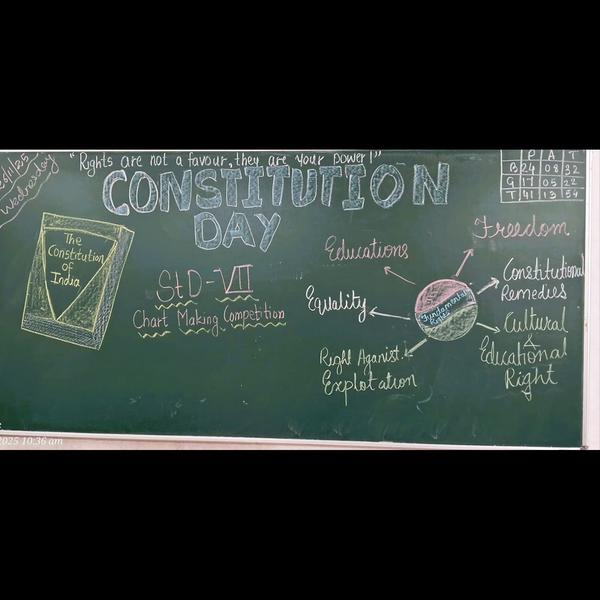 "Rights are not a favour, they are your power!"
CONSTITUTION
DAY
Wednesday
The
Constitution
of
India
StD-VII
Chart Making Competition
P A T
B 24 08 32
G 17 05 22
T 41 13 54
Fundamental
Rights
Educations
Freedom
Equality
Constitutional
Remedies
Right Aganist
Explotation
Cultural
&
Educational
Right
2025 10:36 am